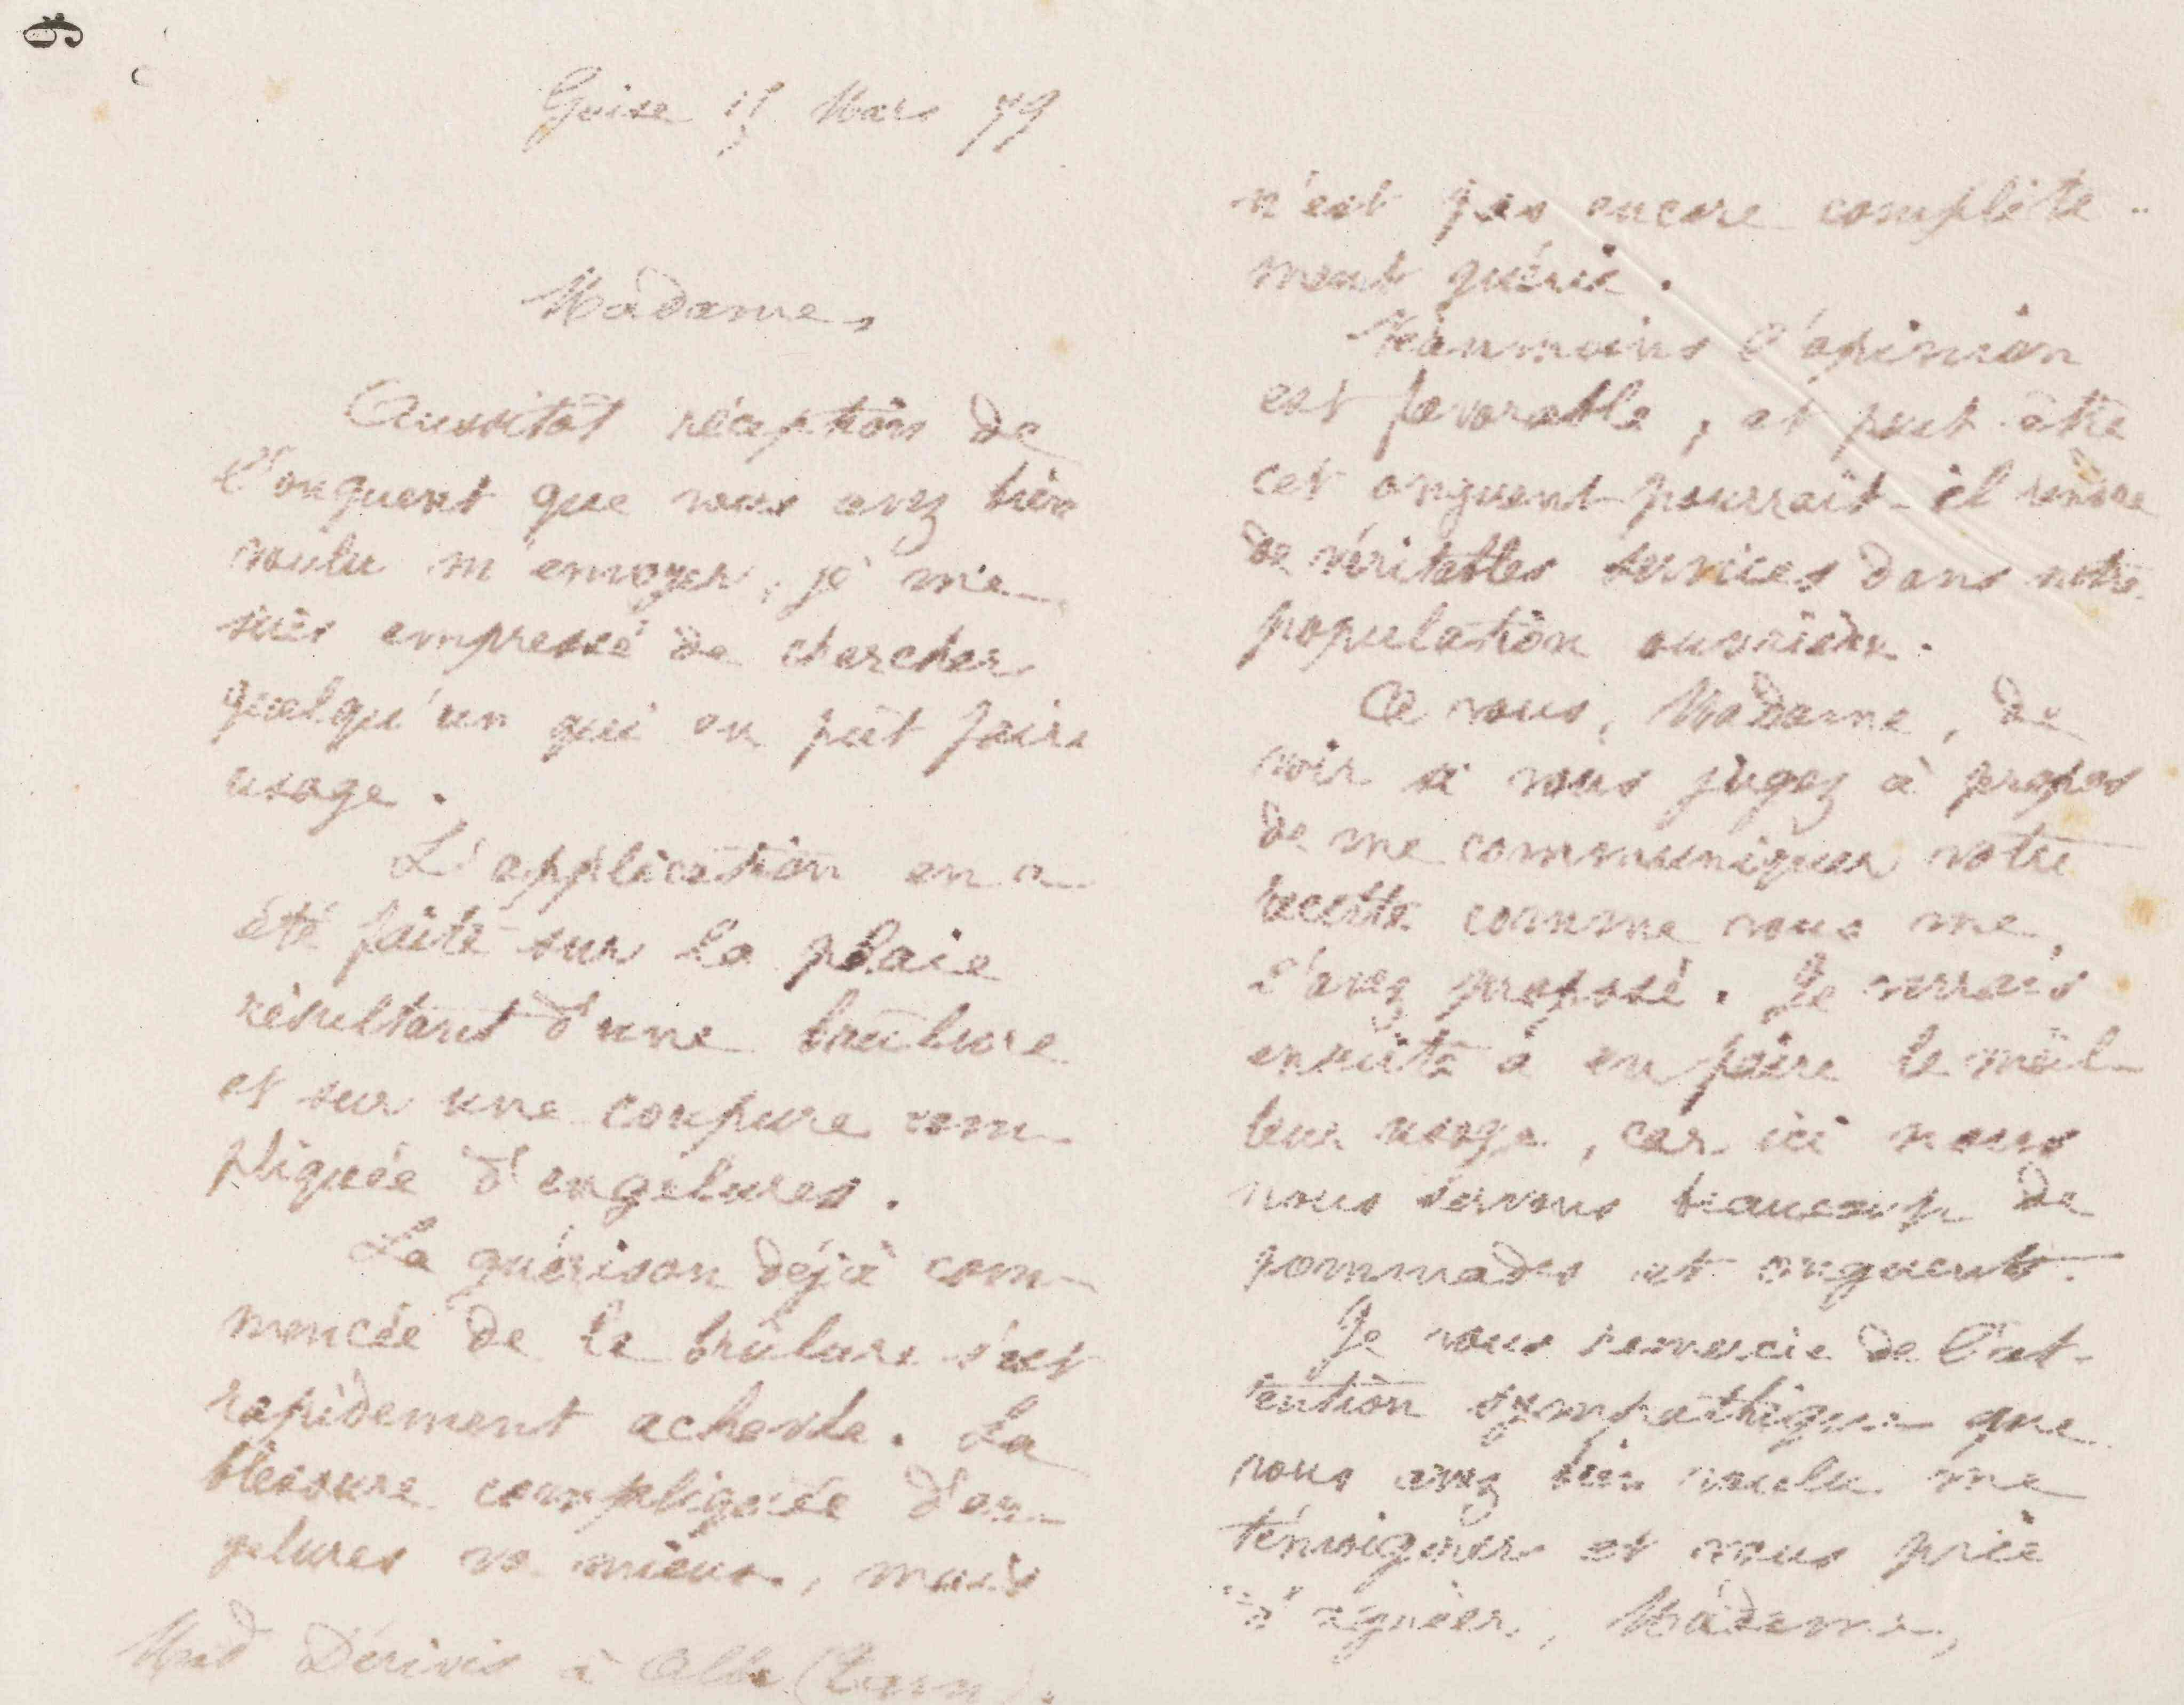 Guise 15 Mars 79
Madame,
Aussitôt réception de
l'onguent que vous avez bien
voulu m'envoyer, je me
suis empressé de chercher
quelqu'un qui en pût faire
usage.
L'application en a
été faite sur la plaie
résultant d'une brûlure
et sur une coupure com-
pliquée d'engelures.
La guérison déjà com-
mencée de la brûlure s'est
rapidement achevée. La
blessure compliquée d'en-
gelures va mieux, mais
Mad Dérivis à Albi (Tarn).
n'est pas encore complète-
ment guérie.
Néanmoins l'opinion
est favorable, et peut-être
cet onguent pourrait-il rendre
de véritables services dans notre
population ouvrière.
A vous, Madame, de
voir si vous jugez à propos
de me communiquer votre
recette comme vous me
l'avez proposé. Je verrais
ensuite à en faire le meil-
leur usage, car ici nous
nous servons beaucoup de
pommades et onguents.
Je vous remercie de l'at-
tention sympathique que
vous avez bien voulu me
témoigner et vous prie
d'agréer, Madame,